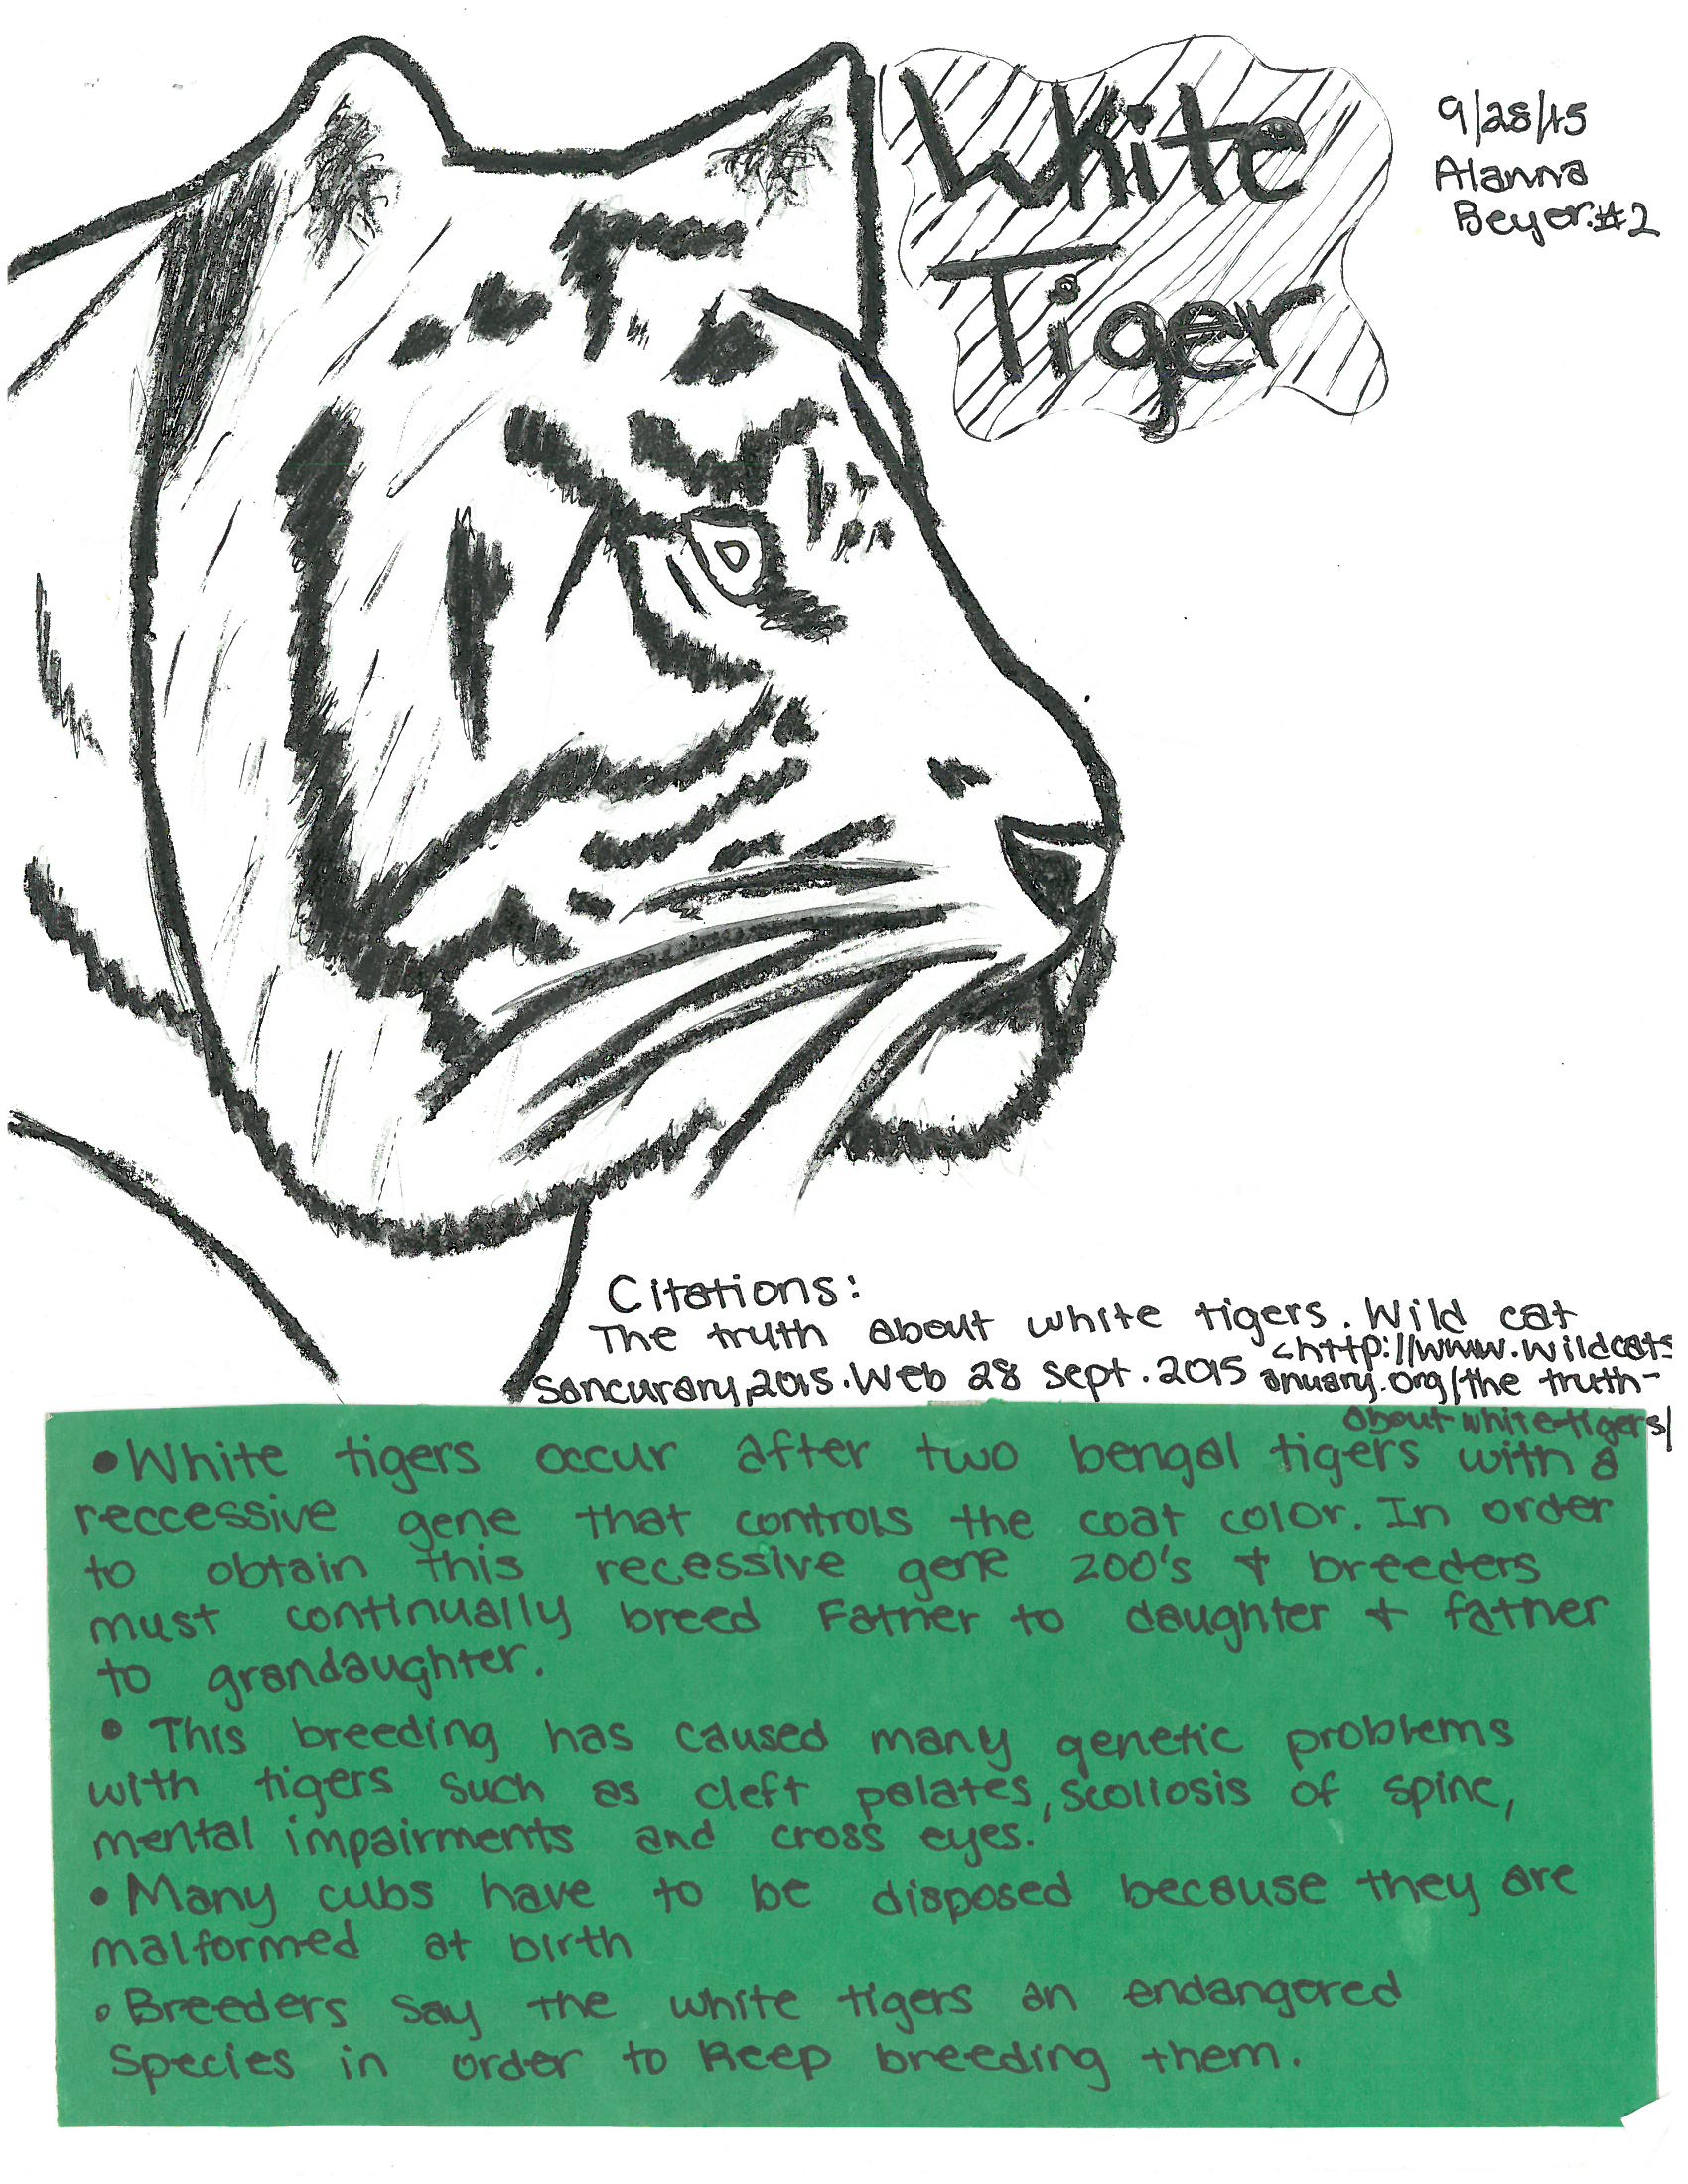 White
Tiger
9/28/15
Alanna
Beyor #2
Citations:
The truth about white tigers. Wild cat
Sancurary, 2015. Web 28 Sept. 2015 <http://www.wildcats
anuary.org/the truth-
about-white-tigers/
•White tigers occur after two bengal tigers with a
reccessive gene that controls the coat color. In order
to obtain this recessive gene zoo's & breeders
must continually breed Father to daughter & father
to grandaughter.
• This breeding has caused many genetic problems
with tigers such as cleft palates, scoliosis of spine,
mental impairments and cross eyes.
•Many cubs have to be disposed because they are
malformed at birth
•Breeders say the white tigers an endangered
species in order to keep breeding them.